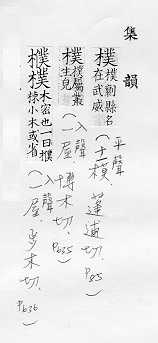 集韻
樸 樸𠟺縣名在武威 平聲(十一模.蓬逋切.P85)
樸 樸屬叢生皃 入聲(一屋.博木切.P635)
樸樸 木密也一曰樸樕小木或省 入聲(一屋.步木切.P636)